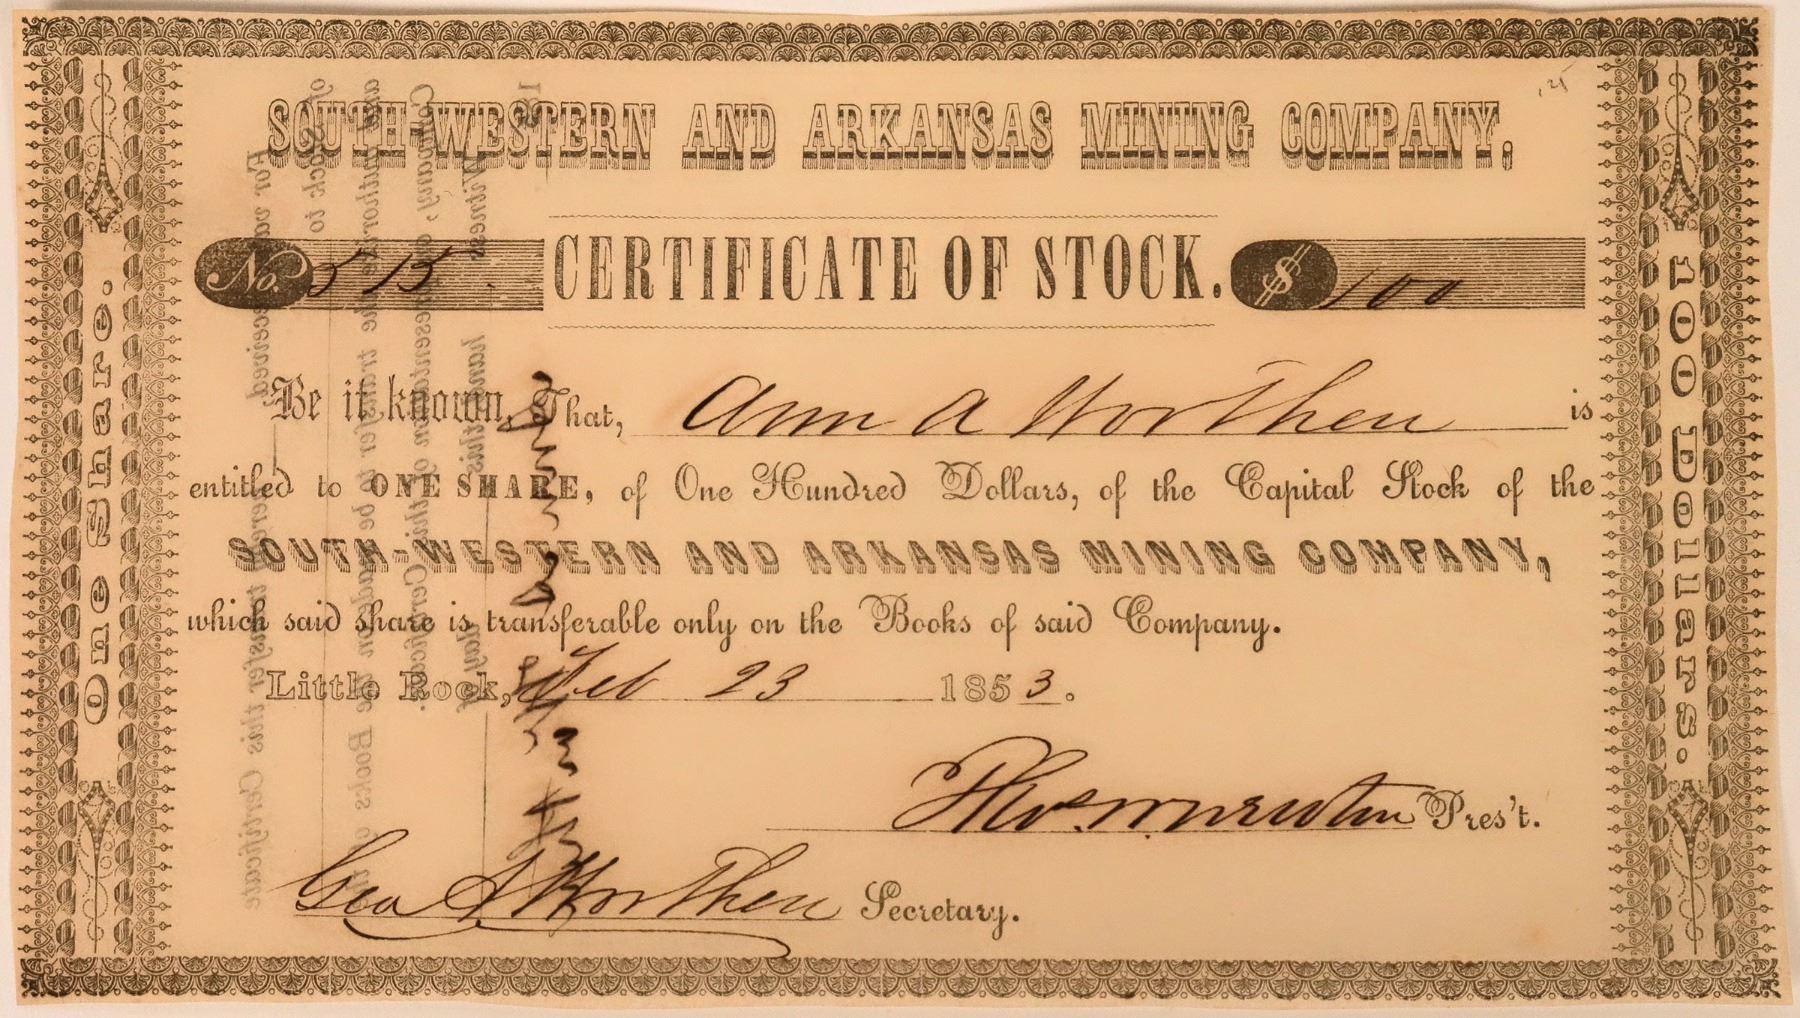 SOUTH-WESTERN AND ARKANSAS MINING COMPANY.
No. 515 CERTIFICATE OF STOCK. $ 100
Be it known, That, Ann A Worthen is
entitled to ONE SHARE, of One Hundred Dollars, of the Capital Stock of the
SOUTH-WESTERN AND ARKANSAS MINING COMPANY,
which said share is transferable only on the Books of said Company.
Little Rock, Feb 23 1853.
Tho. W. Newton Pres't.
Geo A Worthen Secretary.
One Share.
100 Dollars.